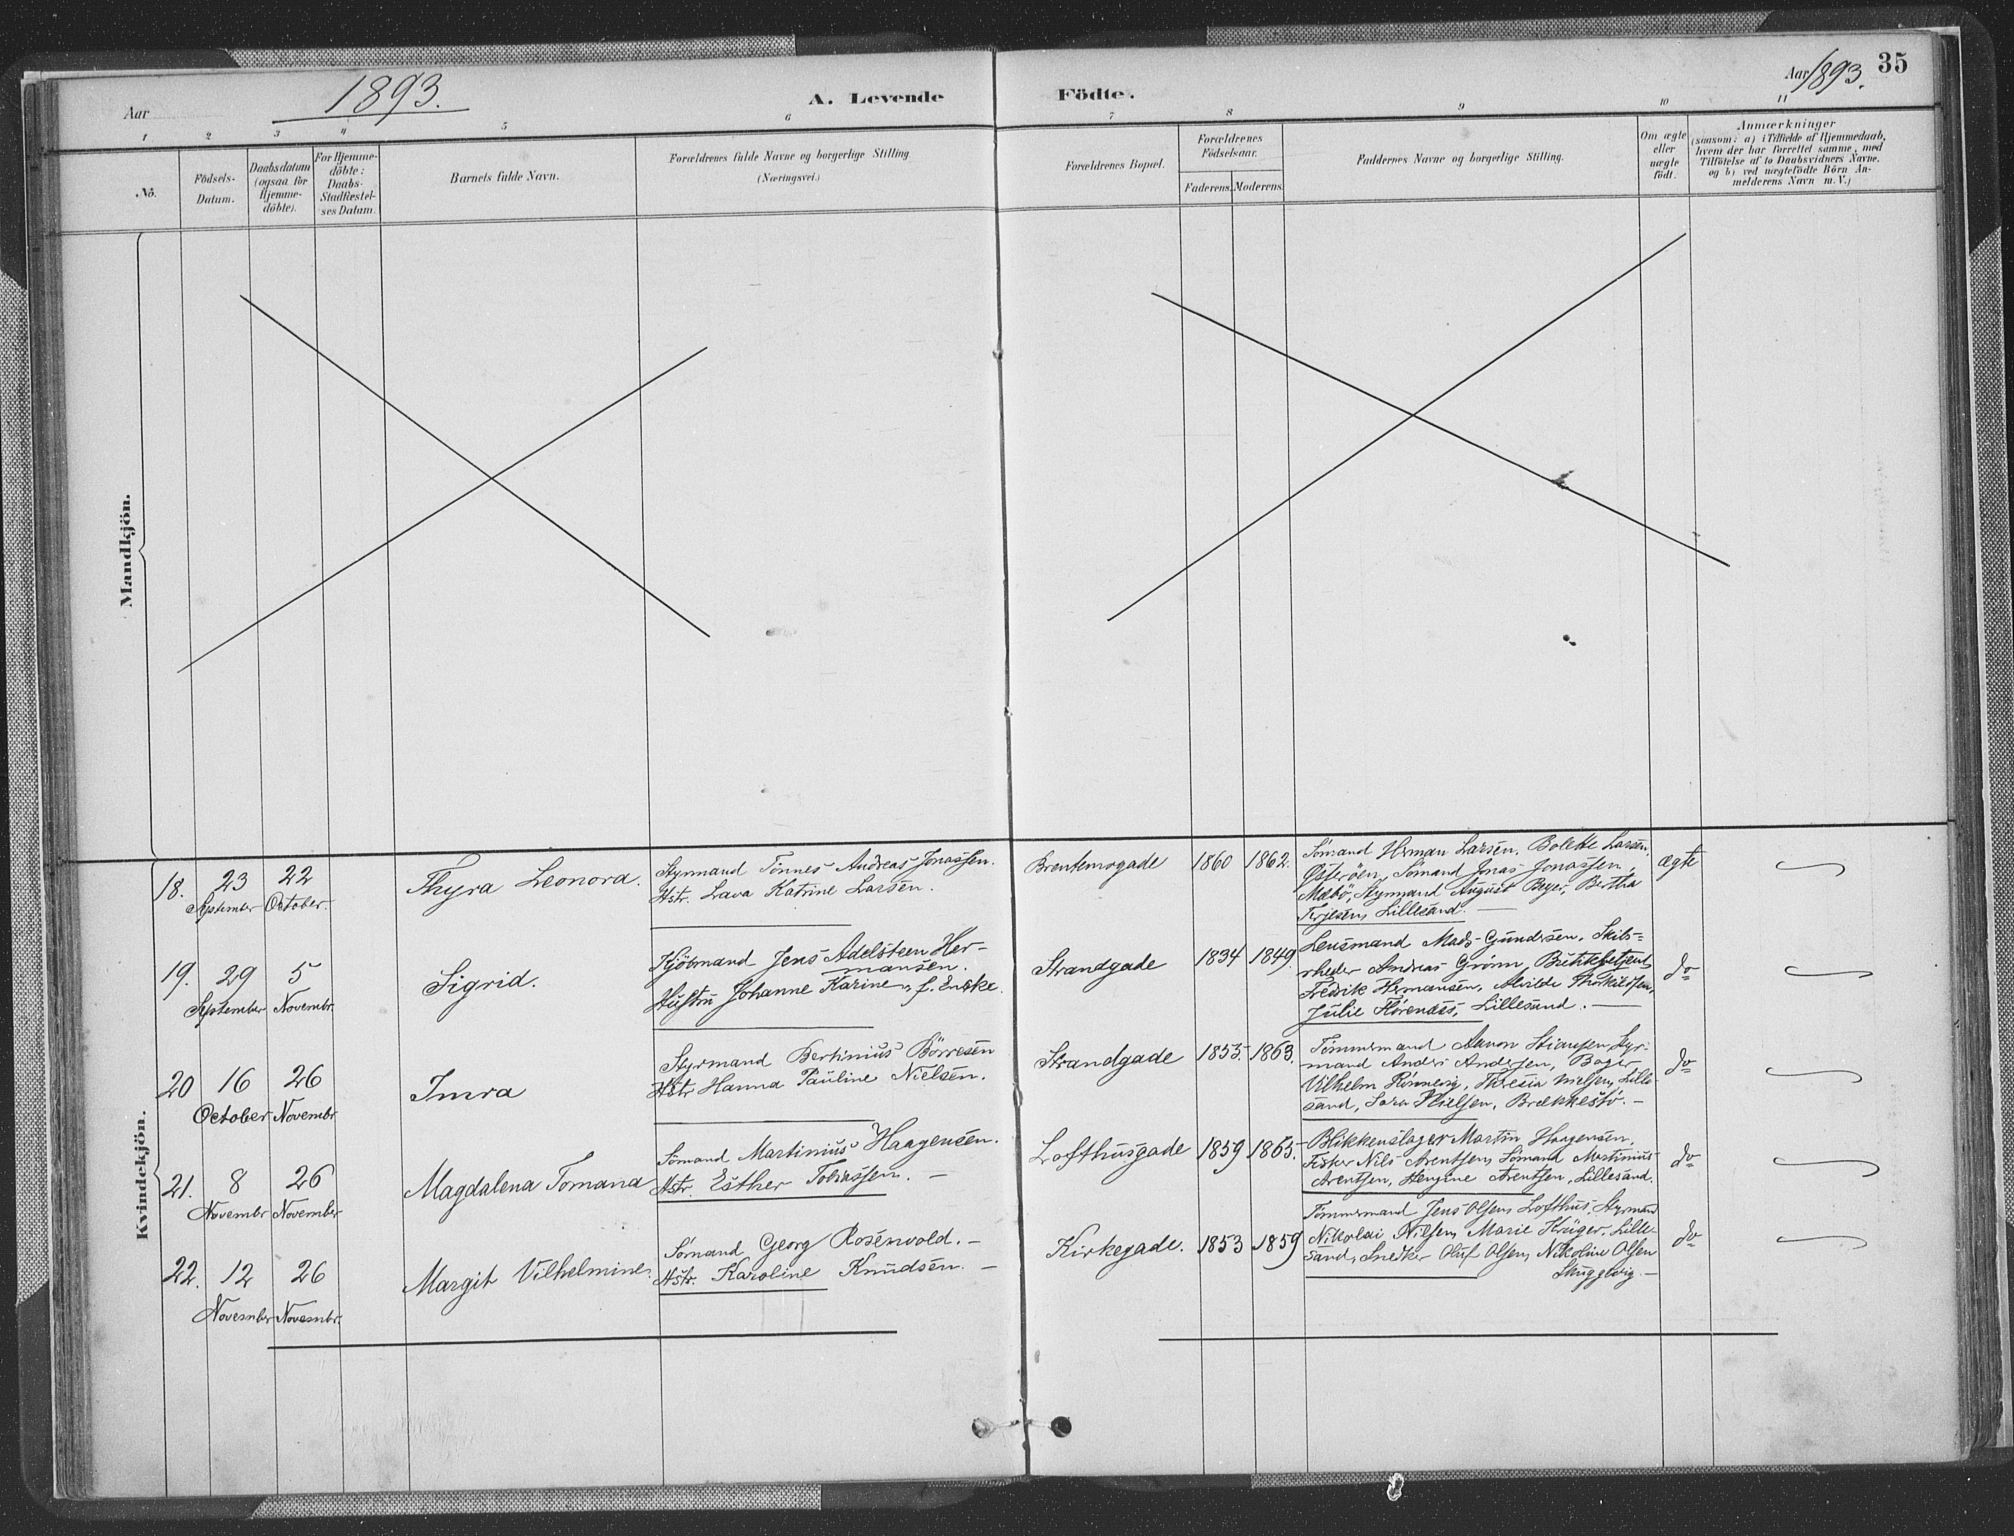 Aar 1893.
A. Levende Födte.
Aar 1893. 35
1 2 3 4 5 6 7 8 9 10 11
No.
Födsels-
Datum.
Daabsdatum
(ogsaa for
Hjemme-
döbte).
For Hjemme-
döbte:
Daabs-
Stadfæstel-
ses Datum.
Barnets fulde Navn.
Forældrenes fulde Navne og borgerlige Stilling
(Næringsvei.)
Forældrenes Bopæl.
Forældrenes
Födselsaar.
Faderens. Moderens.
Faddernes Navne og borgerlige Stilling.
Om ægte
eller
uægte
födt.
Anmærkninger
(saasom: a) i Tilfælde af Hjemmedaab,
hvem der har forrettet samme, med
Tilföielse af to Daabsvidners Navne.
og b) ved uægtefödte Börn An-
melderens Navn m. V.)
Mandkjön.
Kvindekjön.
18. 23 September 22 October.
Thyra Leonora.
Styrmand Tönnes Andreas Jonassen.
Hstr. Lava Katrine Larsen.
Brentemogade 1860 1862.
Sömand Herman Larsen, Bolette Larsen,
Østeröen, Sömand Jonas Jonassen,
Mæbö, Styrmand August Beyer, Bertha
Terjesen, Lillesand.
ægte
19. 29 September 5 Novembr.
Sigrid.
Kjöbmand Jens Adelsteen Her-
mansen.
Hustru Johanne Karine, f. Enske.
Strandgade 1834 1849.
Lensmand Mads Gundersen, Skibs-
rheder Andreas Grönn, Butikbetjent
Fredrik Hermansen, Alvilde Thorkildsen,
Julie Sörensen, Lillesand.
do
20 16 October 26 Novembr
Imra
Styrmand Bertinius Börresen
Hstr Hanna Pauline Nielsen.
Strandgade 1853. 1863.
Tömmermand Aanon Stiansen, Styr-
mand Anders Andersen, Bager
Vilhelm Rinnesig, Theresia Nielsen, Lille-
sand, Sara Nielsen, Brækkestö.
do
21. 8 Novembr 26 November
Magdalena Tomana
Sömand Martinius Haagensen.
Hstr. Esther Tobiassen.
Lofthusgade 1859 1865.
Blikkenslager Martin Haagensen,
Fisker Nils Arentsen, Sömand Martinius
Arentsen, Hengine Arentsen, Lillesand.
do
22. 12 November 26 Novembr.
Margit Vilhelmine.
Sömand Georg Rosenvold.
Hstr. Karoline Knudsen.
Kirkegade. 1853 1859
Tömmermand Jens Olsen Lofthus, Styrmand
Nikolai Nilsen, Marie Krüger, Lille-
sand, Snedker Oluf Olsen, Nikoline Olsen
Skuggevig.
do